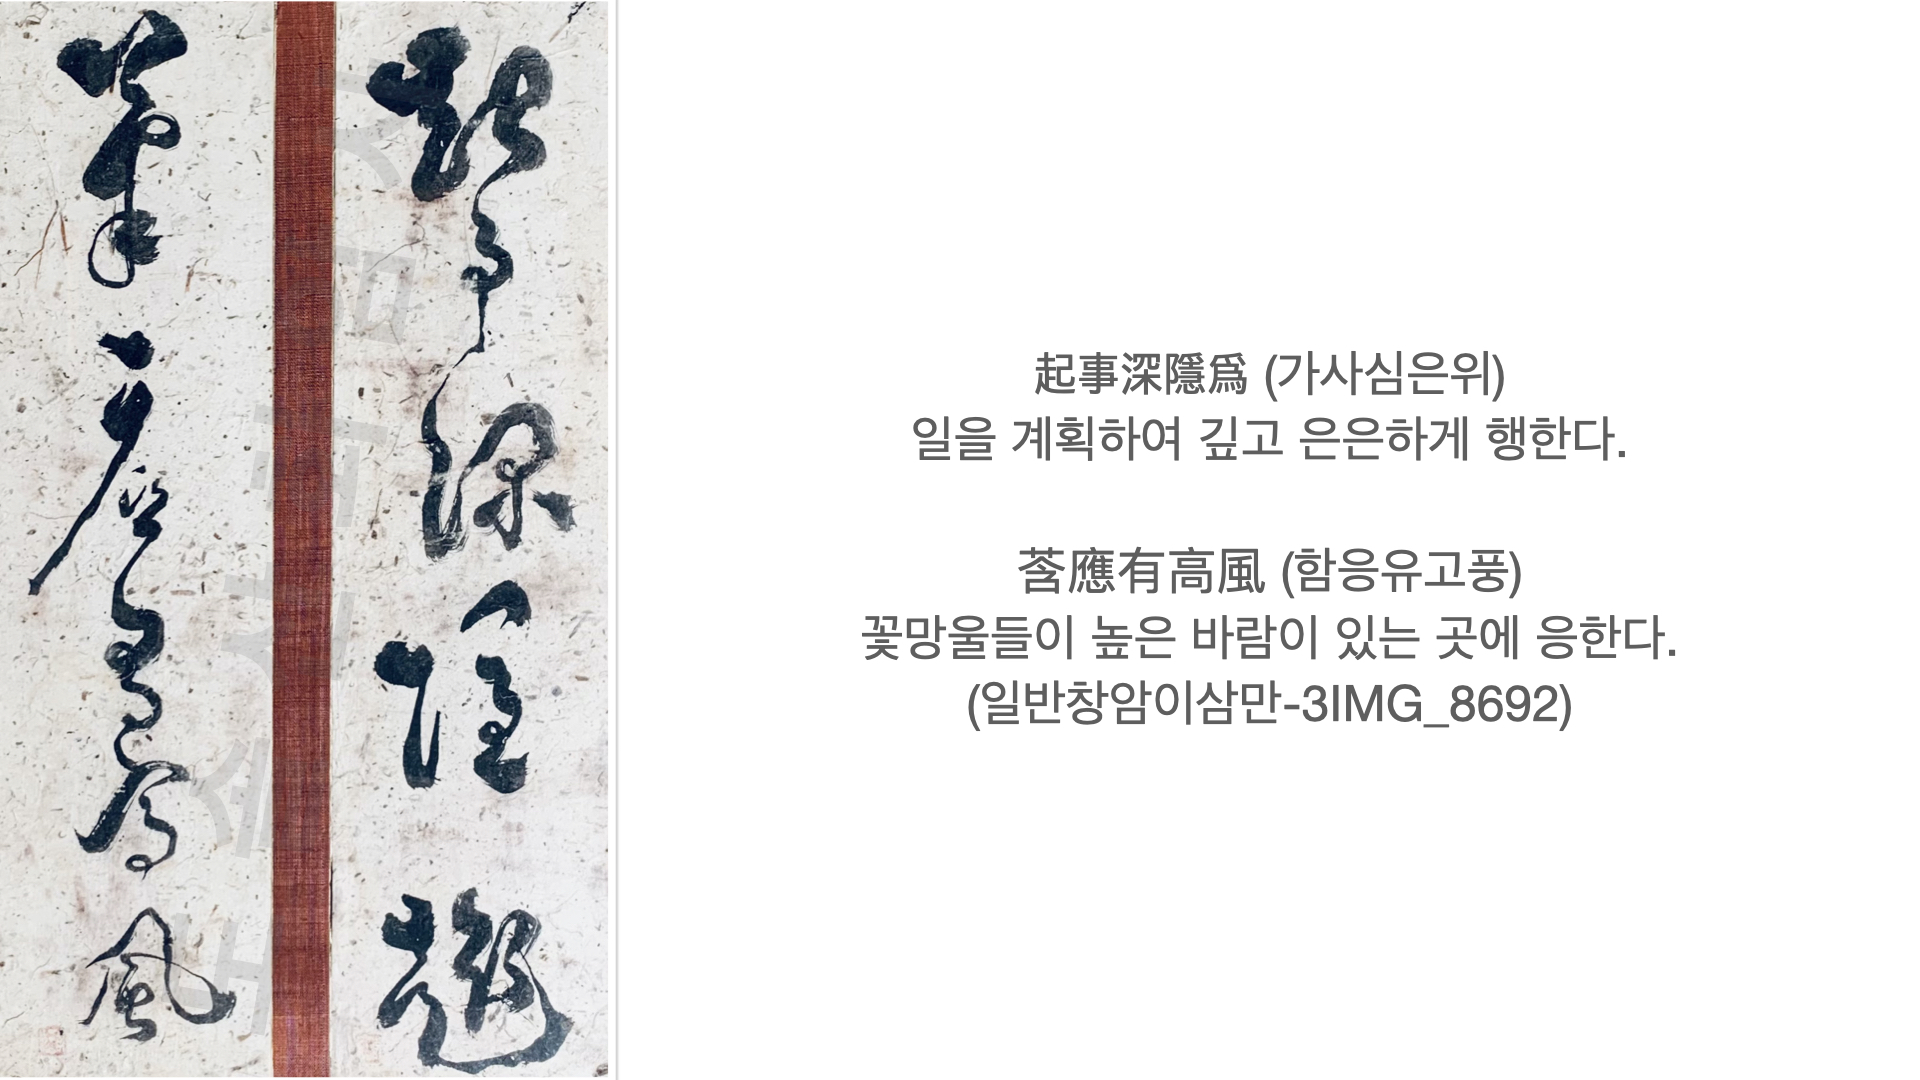 事深隱趣
應有高風
起事深隱爲 (가사심은위)
일을 계획하여 깊고 은은하게 행한다.
莟應有高風 (함응유고풍)
꽃망울들이 높은 바람이 있는 곳에 응한다.
(일반창암이삼만-3IMG_8692)